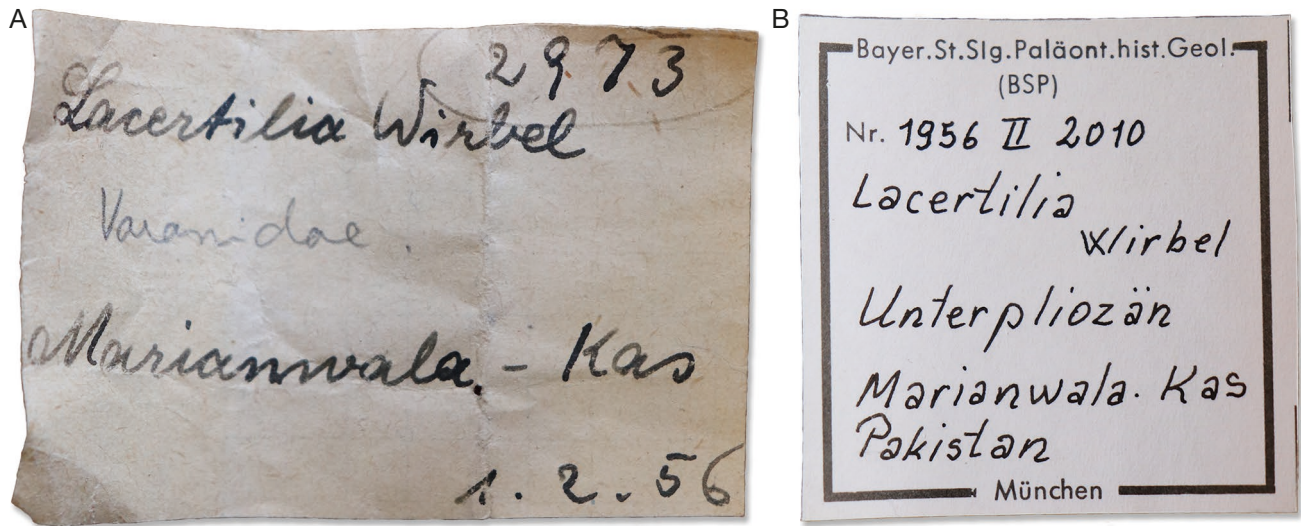 A
2973
Lacertilia Wirbel
Varanidae.
Marianwala. - Kas
1. 2. 56
B
Bayer.St.Slg.Paläont.hist.Geol.
(BSP)
Nr. 1956 II 2010
Lacertilia
Wirbel
Unterpliozän
Marianwala. Kas
Pakistan
München